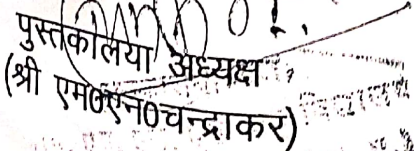 पुस्तकालिया अध्यक्ष
(श्री एम0एन0चन्द्राकर)